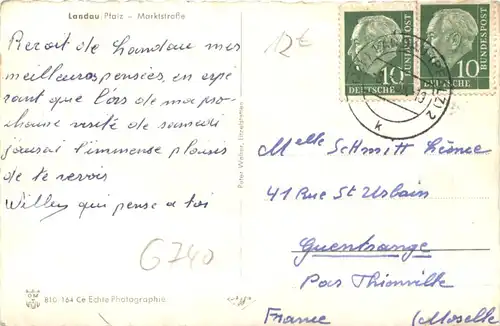 Landau Pfalz – Marktstraße
12€
Reçoit de Landau mes
meilleures pensées, en espé
rant que l'ors de ma pro-
chaine visite de samedi
j'aurai l'immense plaisir
de te revoir
Willy qui pense a toi
G740
810 164 Ce Echte Photographie
Peter Weber,
DEUTSCHE BUNDESPOST 10
DEUTSCHE BUNDESPOST 10
Melle Schmitt Léonie
41 Rue St Urbain
Guentrange
par Thionville
France (Moselle